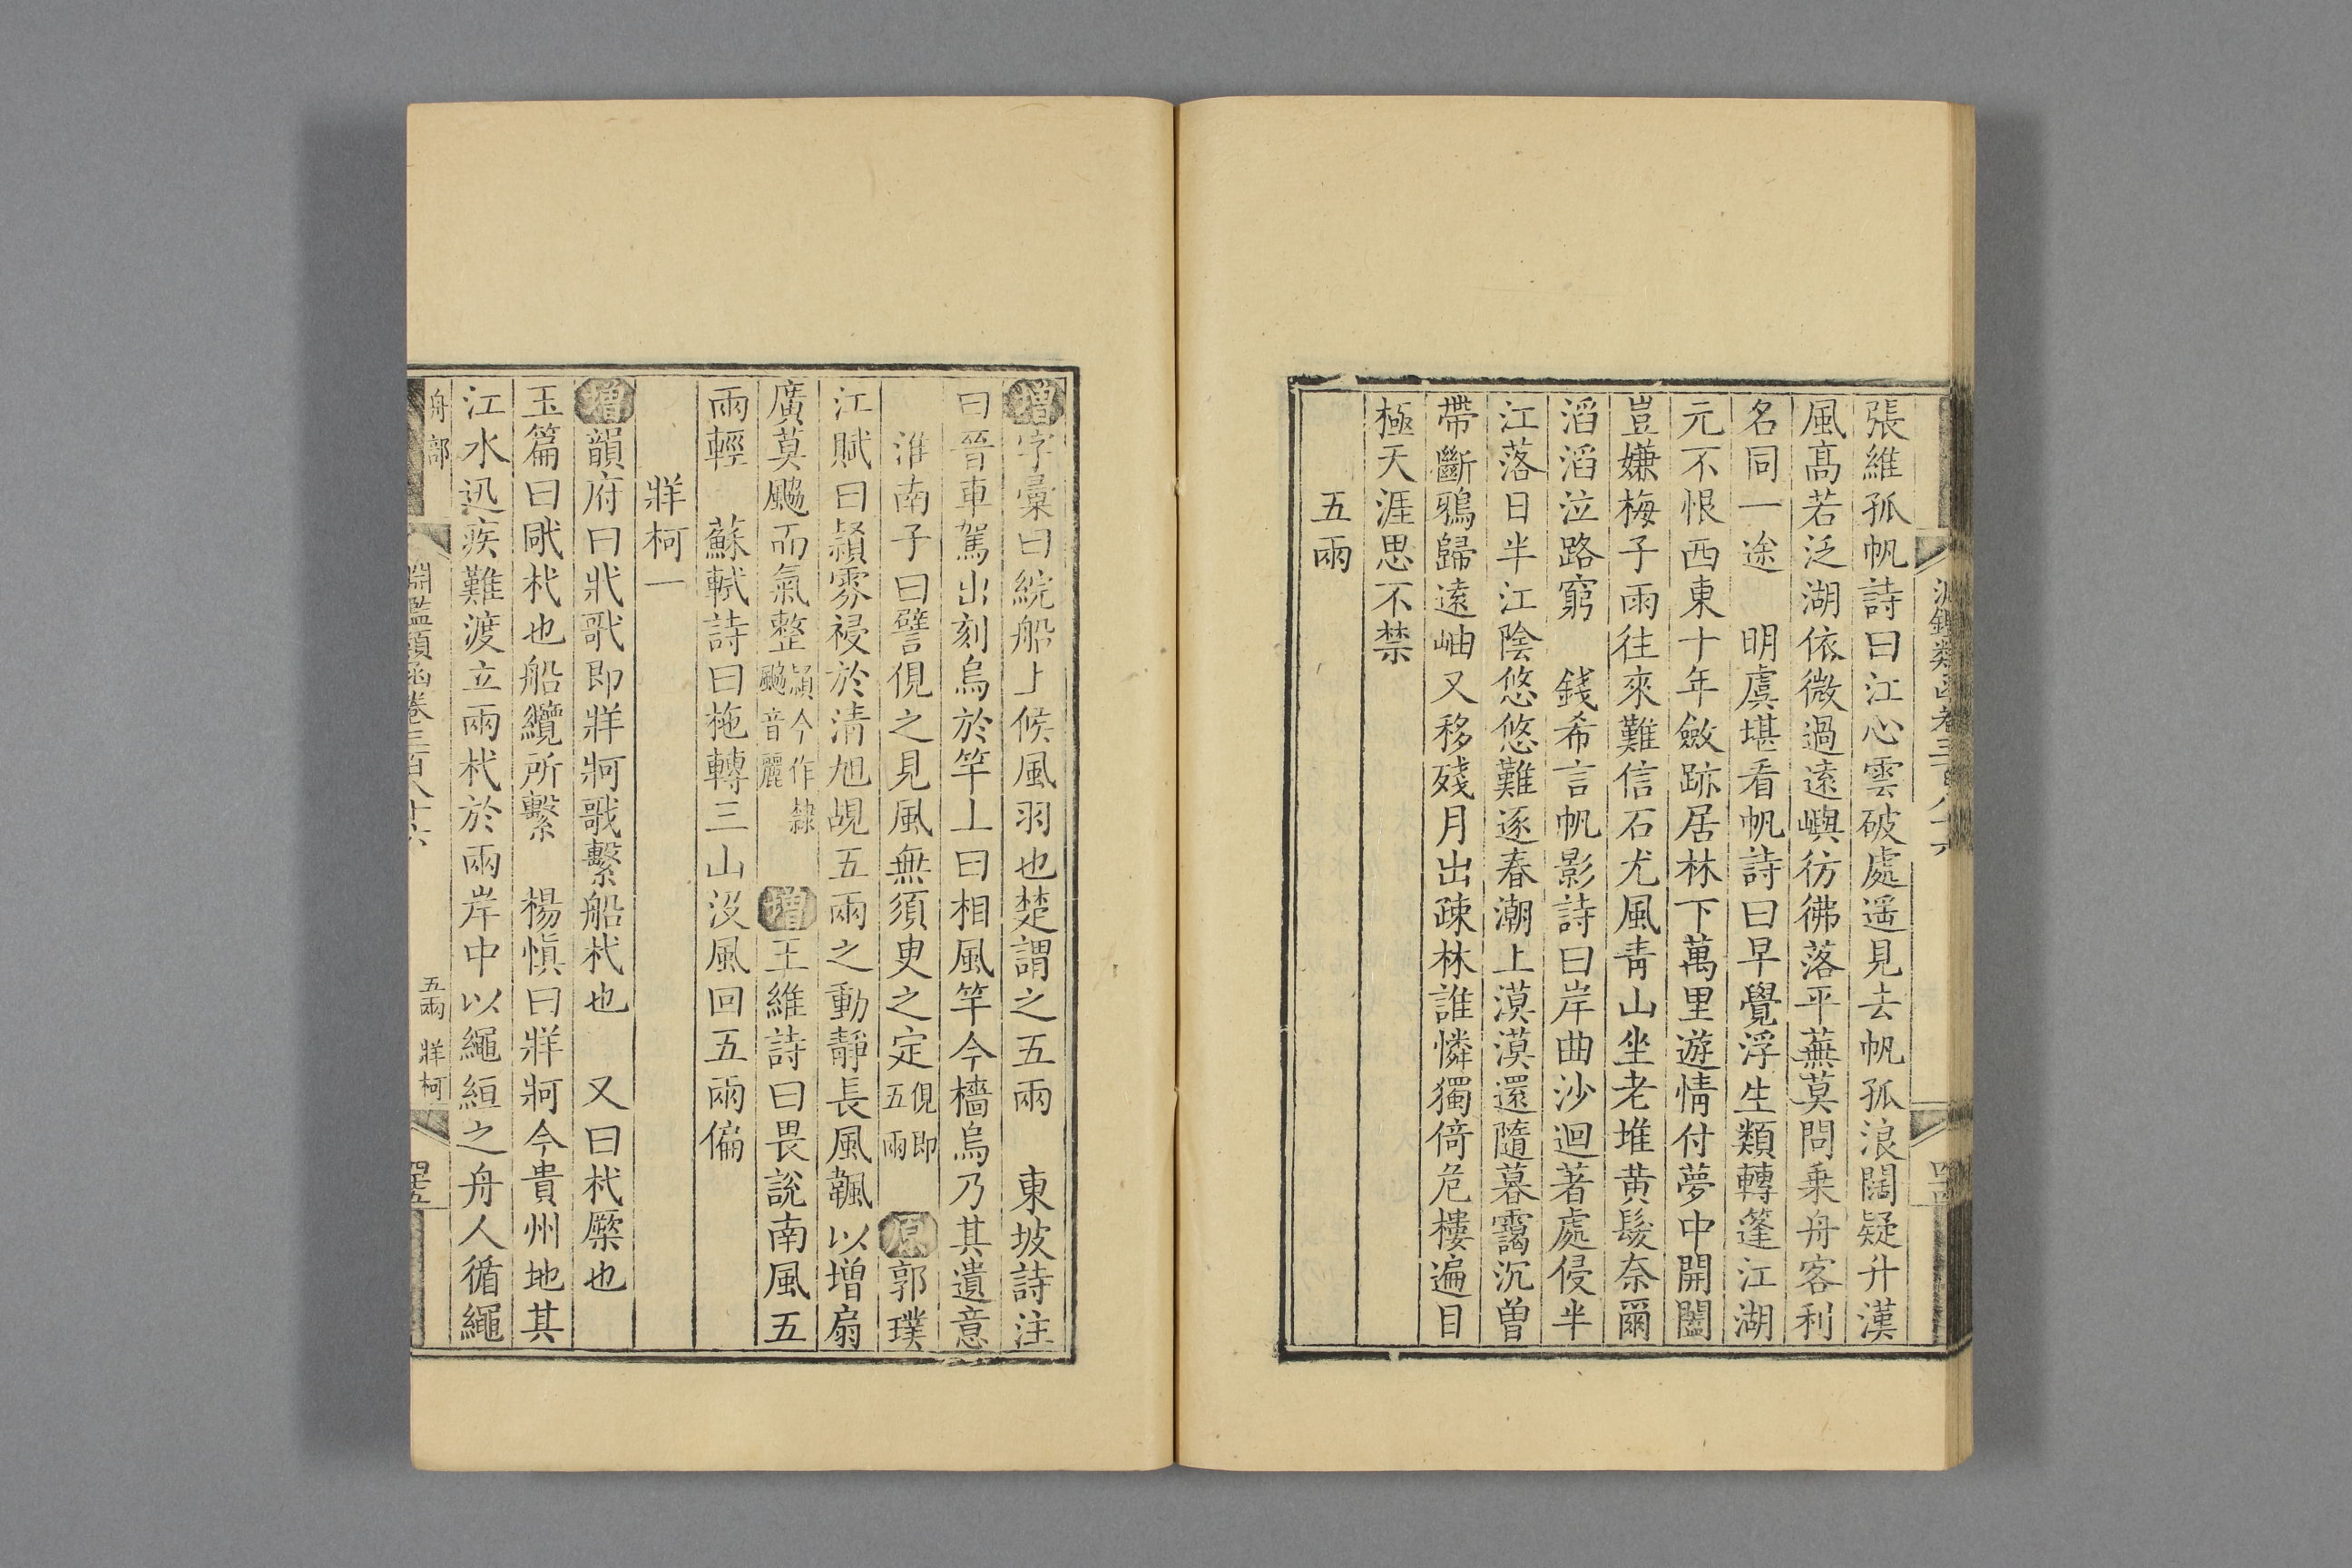 張維孤帆詩曰江心雲破處遥見去帆孤浪闊疑升漢
風髙若泛湖依微過遠嶼彷彿落平蕪莫問乗舟客利
名同一途　明虞堪看帆詩曰早覺浮生類轉篷江湖
元不恨西東十年斂跡居林下萬里遊情付夢中開闔
豈嫌梅子雨往來難信石尤風青山坐老堆黄髮奈爾
滔滔泣路窮　錢希言帆影詩曰岸曲沙迴著處侵半
江落日半江陰悠悠難逐春潮上漠漠還隨暮靄沉曽
帶斷鴉歸遠岫又移殘月出疎林誰憐獨倚危樓遍目
極天涯思不禁
五兩
增字彚曰綄船上候風羽也楚謂之五兩　東坡詩注
曰晉車駕出刻烏於竿上曰相風竿今檣烏乃其遺意
淮南子曰譬俔之見風無須臾之定俔即五兩　原郭璞
江賦曰䫉雰祲於清旭覘五兩之動靜長風颹以増扇
廣莫䬆而氣整䫉今作隸䬆音麗　增王維詩曰畏說南風五
兩輕　蘇軾詩曰拖轉三山没風回五兩偏
牂柯一
增韻府曰戕歌即牂牁戨繫船杙也　又曰杙橜也
玉篇曰戙杙也船纜所繫　楊愼曰牂牁今貴州地其
江水迅疾難渡立兩杙於兩岸中以繩絙之舟人循繩
舟部
淵鑑類函卷三百八十六
五兩　牂柯